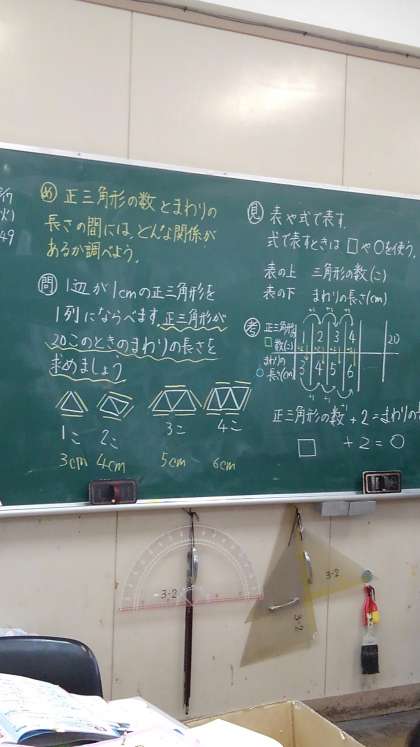 /17
火)
49
め 正三角形の数とまわりの
長さの間には、どんな関係が
あるか調べよう。
問 1辺が1cmの正三角形を
1列にならべます。正三角形が
20このときのまわりの長さを
求めましょう
1こ 2こ 3こ 4こ
3cm 4cm 5cm 6cm
見 表や式で表す。
式で表すときは□や○を使う。
表の上 三角形の数(こ)
表の下 まわりの長さ(cm)
考 正三角形の
□数(こ) 1 2 3 4 20
まわりの
○長さ(cm) 3 4 5 6
正三角形の数+2=まわりの
□ +2=○
3-2
3-2
3-2